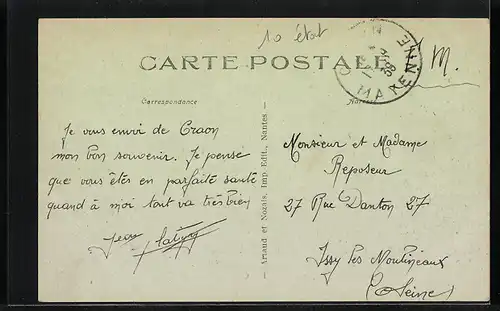 1o état
CARTE POSTALE
MAYENNE
38
M.
Correspondance
Adresse
Je vous envoi de Craon
mon bon souvenir. Je pense
que vous êtês en parfaite santé
quand à moi tout va très bien
Monsieur et Madame
Reposeur
27 Rue Danton 27
Issy les Moulineaux
(Seine)
Artaud et Nozais, Imp. Edit., Nantes.